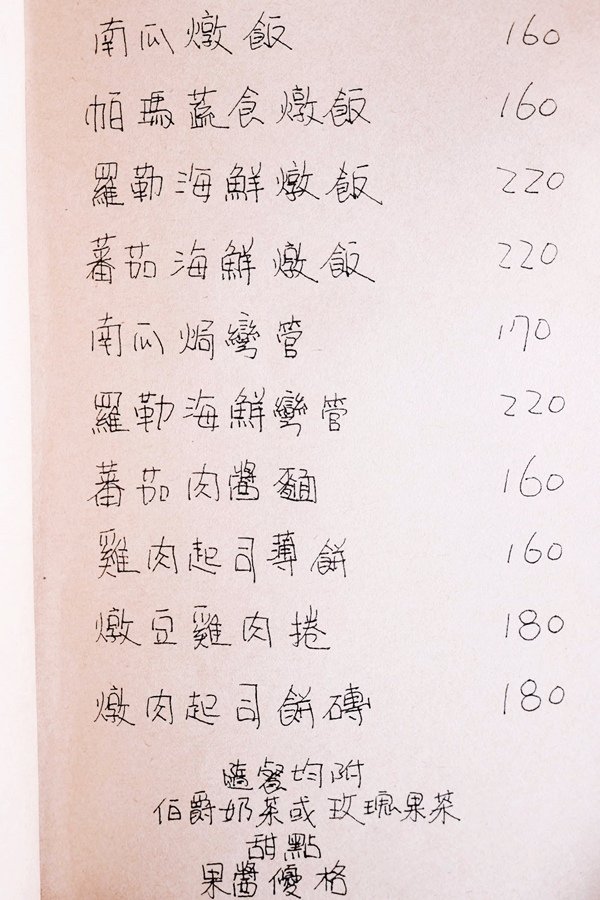 南瓜燉飯 160
帕瑪蔬食燉飯 160
羅勒海鮮燉飯 220
蕃茄海鮮燉飯 220
南瓜焗彎管 170
羅勒海鮮彎管 220
蕃茄肉醬麵 160
雞肉起司薄餅 160
燉豆雞肉捲 180
燉肉起司餅磚 180
隨餐均附
伯爵奶茶或玫瑰果茶
甜點
果醬優格